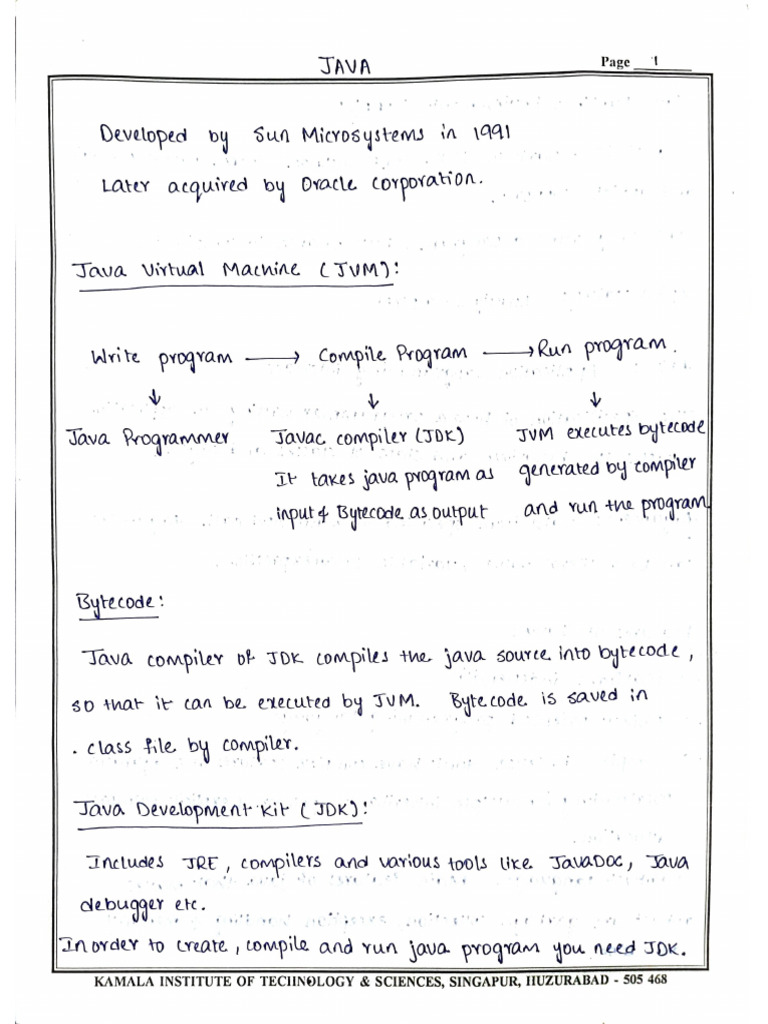 JAVA
Page 1
Developed by Sun Microsystems in 1991
Later acquired by Oracle corporation.
Java Virtual Machine (JVM):
Write program → Compile Program → Run program.
↓ ↓ ↓
Java Programmer Javac compiler (JDK) JVM executes bytecode
It takes java program as generated by compiler
input & Bytecode as output and run the program
Bytecode:
Java compiler of JDK compiles the java source into bytecode,
so that it can be executed by JVM. Bytecode is saved in
.class file by compiler.
Java Development Kit (JDK):
Includes JRE, compilers and various tools like JavaDOC, Java
debugger etc.
In order to create, compile and run java program you need JDK.
KAMALA INSTITUTE OF TECHNOLOGY & SCIENCES, SINGAPUR, HUZURABAD - 505 468